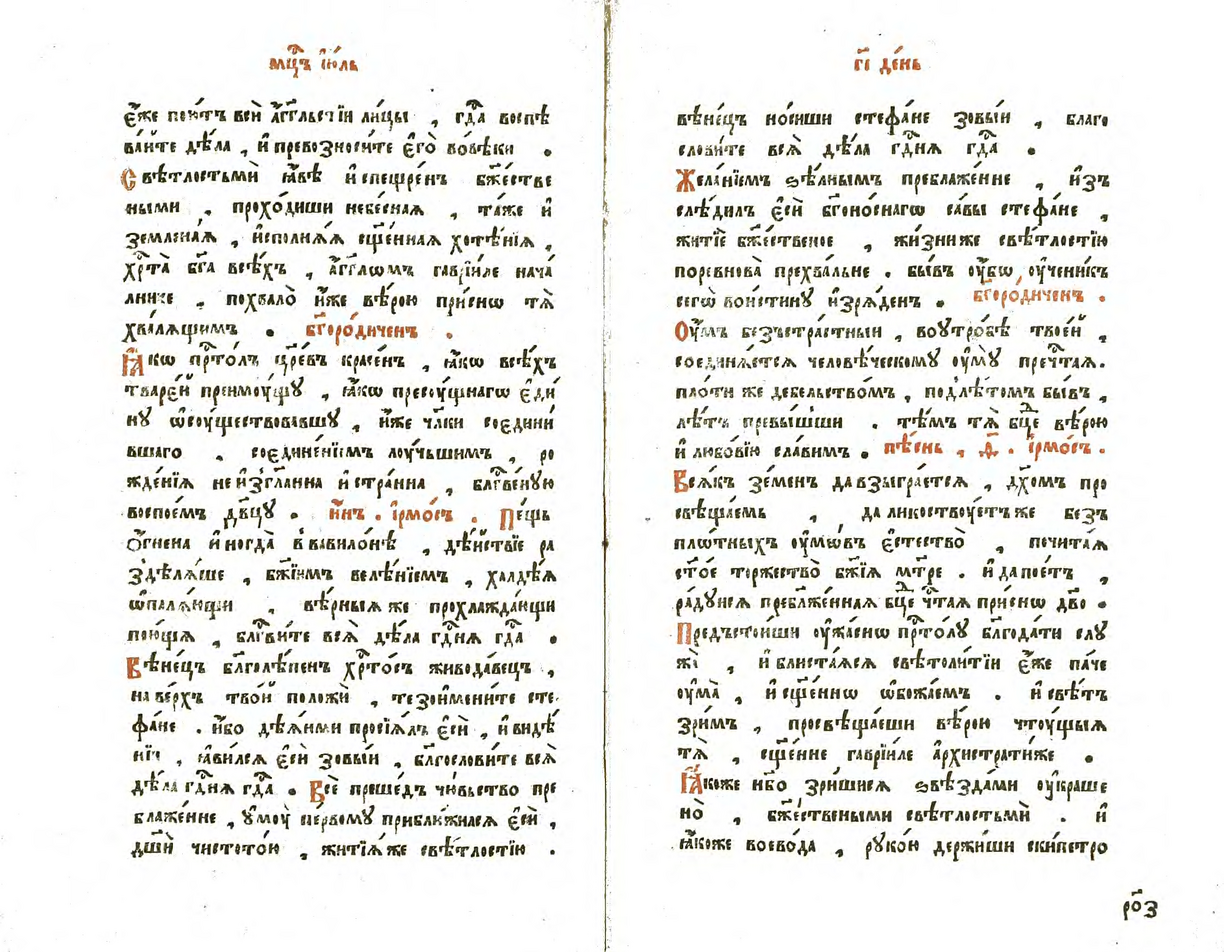 мц҃ъ і҆ю́ль
є҆́же пою́тъ всѝ а҆́гг҃льстїи ли́цы , гдⷭ҇а воспѣ
ва́йте дѣ́ла , и҆ превозноси́те є҆го̀ во́вѣки .
Свѣ́тлостьмѝ ꙗ҆́вѣ и҆спещре́нъ бж҃е́стве
ными , прохо́диши небе́сная , та́же и҆
земльна́ѧ , и҆сполнѧ́ѧ сщ҃е́нная хотѣ́нїѧ ,
хрⷭ҇та̀ бг҃а всѣ́хъ , а҆́гг҃лѡмъ гаврїи́ле нача́
лниче , похвало̀ и҆́же вѣ́рою при́снѡ тѧ̀
хва́лѧщимъ . бг҃оро́диченъ .
Ꙗ҆́кѡ прⷭ҇то́лъ цр҃е́въ красе́нъ , ꙗ҆́кѡ всѣ́хъ
тваре́й преимоу́щꙋ , ꙗ҆́кѡ пресоу́щнагѡ є҆ди́
нꙋ ѡ҆соуществова́вшꙋ , и҆́же чл҃ки соедини́
вшаго , соедине́нїемъ лоу́чьшимъ , ро
жде́нїѧ неи҆зг҃ла́нна и҆ стра́нна , блгⷭ҇ве́нꙋю
воспое́мъ дв҃цꙋ . и҆́нъ . і҆рмо́съ . Пе́щь
о҆́гнена и҆ногда̀ в вавило́нѣ , дѣ́йствїе ра
здѣлѧ́ше , бж҃їимъ велѣ́нїемъ , халдѣ́ѧ
ѡ҆палѧ́ющи , вѣ́рныѧ же прохлажда́ющи
пою́щїѧ , блгⷭ҇ви́те всѧ̀ дѣла̀ гдⷭ҇нѧ гдⷭ҇а .
Вѣне́цъ бл҃голѣ́пенъ хрⷭ҇то́съ живода́вецъ ,
на ве́рхъ тво́й положѝ , тезоимени́те сте
фа́не . и҆́бо дѣѧ́ньми просїѧ́лъ є҆сѝ , и҆ видѣ́
нїи , ꙗ҆ви́лсѧ є҆сѝ зовы́и , бл҃гослови́те всѧ̀
дѣла̀ гдⷭ҇нѧ гдⷭ҇а . Всѐ преше́дъ чю́вьство пре
блаже́нне , ᲂу҆моу̀ пе́рвомꙋ прибли́жилсѧ є҆сѝ ,
дш҃и чистото́ю , житїѧ́ же свѣ́тлостїю .
гı҃ де́нь
вѣне́цъ но́сиши стефа́не зовы́и , благо
слови́те всѧ̀ дѣла̀ гдⷭ҇нѧ гдⷭ҇а .
Жела́нїемъ ѕѣ́лнымъ преблаже́нне , и҆зъ
слѣ́дилъ є҆сѝ бг҃оно́снагѡ са́вы стефа́не ,
житїѐ бж҃е́ственое , жи́зни же свѣ́тлостїю
поревнова̀ прехва́льне . бы́въ ᲂу҆́бѡ ᲂу҆чени́къ
сегѡ̀ вои́стинꙋ и҆зрѧ́денъ . бг҃оро́диченъ .
Оу҆́мъ безъстра́стныи , воутро́бѣ твое́й ,
соединѧ́етсѧ человѣ́ческомꙋ ᲂу҆мꙋ̀ прⷱ҇тая .
пло́ти же дебельство́мъ , подлѣ́томъ бы́въ ,
лѣ́тъ превы́шши . тѣ́мъ тѧ̀ бцⷣе вѣ́рою
и҆ любо́вїю сла́вимъ . пѣ́снь , ѳ҃ . і҆рмо́съ .
Всѧ́къ зе́менъ да взыгра́етсѧ , дх҃омъ про
свѣща́емь , да ликоствꙋ́етъ же безъ
пло́тныхъ ᲂу҆мѡ́въ є҆стество̀ , почита́ѧ
ст҃о́е торжество̀ бж҃їѧ мт҃ре . и҆ да пое́тъ ,
ра́дꙋйсѧ преблаже́нная бцⷣе чⷭ҇тая при́снѡ дв҃о .
Предъстои́ши ᲂу҆жа́снѡ прⷭ҇то́лꙋ бл҃года́ти слꙋ
жѝ , и҆ блиста́ѧсѧ свѣтоли́тїи є҆́же па́че
ᲂу҆ма̀ , и҆ сщ҃е́ннѡ ѡ҆божа́емъ . и҆ свѣ́тъ
зри́мъ , просвѣща́еши вѣ́рою чтоу́щыѧ
тѧ̀ , сщ҃е́нне гаврїи́ле а҆рхистрати́же .
Ꙗ҆́коже нб҃о зри́шисѧ ѕвѣзда́ми ᲂу҆кра́ше
но̀ , бж҃е́ствеными свѣ́тлостьмѝ . и҆
ꙗ҆́коже воево́да , рꙋко́ю держи́ши ски́петро
ро҃з